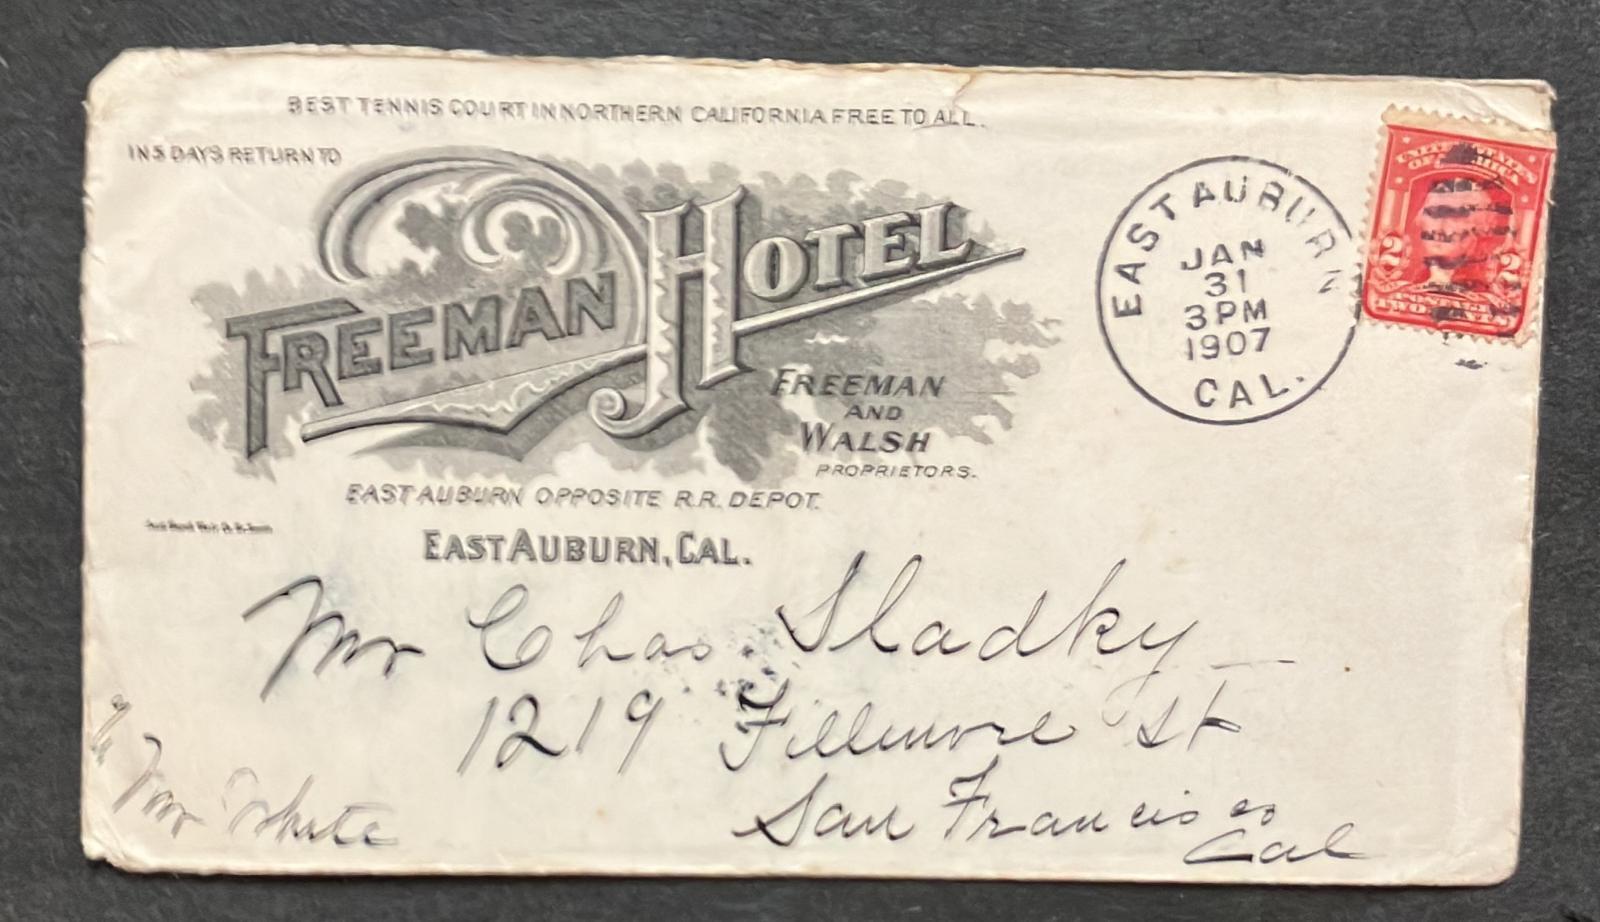 BEST TENNIS COURT IN NORTHERN CALIFORNIA FREE TO ALL.
IN 5 DAYS RETURN TO
FREEMAN HOTEL
FREEMAN
AND
WALSH
PROPRIETORS.
EAST AUBURN OPPOSITE R.R. DEPOT.
EAST AUBURN, CAL.
EAST AUBURN
JAN
31
3 PM
1907
CAL.
UNITED STATES
OF AMERICA
2 2
POSTAGE
TWO CENTS
Mr Chas. Sladky
1219 Fillmore St
San Francisco
Cal
c/o
Mr White